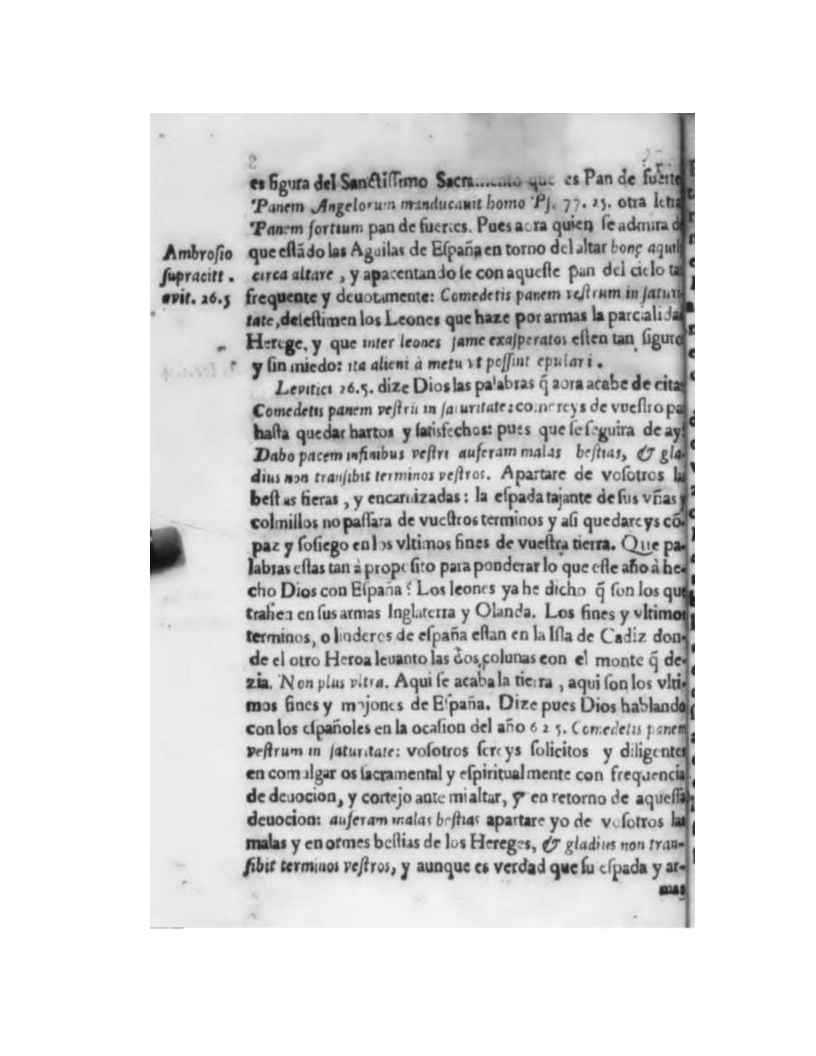 es figura del Sanctissimo que es Pan de fuerte
Panem Angelorum manducauit homo Ps. 77. 25. otra letra
Panem fortium pan de fuertes. Pues aora quien se admira d
Ambrosio
supracitt.
que estādo las Aguilas de España en torno del altar bonę aquil
circa altare, y apacentandose con aqueste pan del cielo ta
levit. 26.5
frequente y deuotamente: Comedetis panem vestrum in saturi-
tate, desestimen los Leones que haze por armas la parcialidad
Herege, y que inter leones fame exasperatos esten tan siguro
y sin miedo: ita alieni à metu vt possint epulari.
Levitici 26.5. dize Dios las palabras q̃ aora acabe de cita
Comedetis panem vestrū in saturitate: comereys de vuestro pa
hasta quedar hartos y satisfechos: pues que se seguira de ay?
Dabo pacem in finibus vestri auferam malas bestias, & gla
dius non transibit terminos vestros. Apartare de vosotros la
bestias fieras, y encarnizadas: la espada tajante de sus vñas y
colmillos no passara de vuestros terminos y asi quedareys cō
paz y sosiego en los vltimos fines de vuestra tierra. Que pa-
labras estas tan à proposito para ponderar lo que este año à he-
cho Dios con España? Los leones ya he dicho q̃ son los que
trahen en sus armas Inglaterra y Olanda. Los fines y vltimos
terminos, o linderos de españa estan en la Isla de Cadiz don-
de el otro Heroa leuanto las dos colunas con el monte q̃ de-
zia. Non plus vltra. Aqui se acaba la tierra, aqui son los vlti-
mos fines y mojones de España. Dize pues Dios hablando
con los españoles en la ocasion del año 625. Comedetis panem
vestrum in saturitate: vosotros sereys solicitos y diligentes
en comulgar os sacramental y espiritualmente con frequencia
de deuocion, y cortejo ante mi altar, y en retorno de aquessa
deuocion: auferam malas bestias apartare yo de vosotros las
malas y enormes bestias de los Hereges, & gladius non tran-
sibit terminos vestros, y aunque es verdad que su espada y ar-
mas